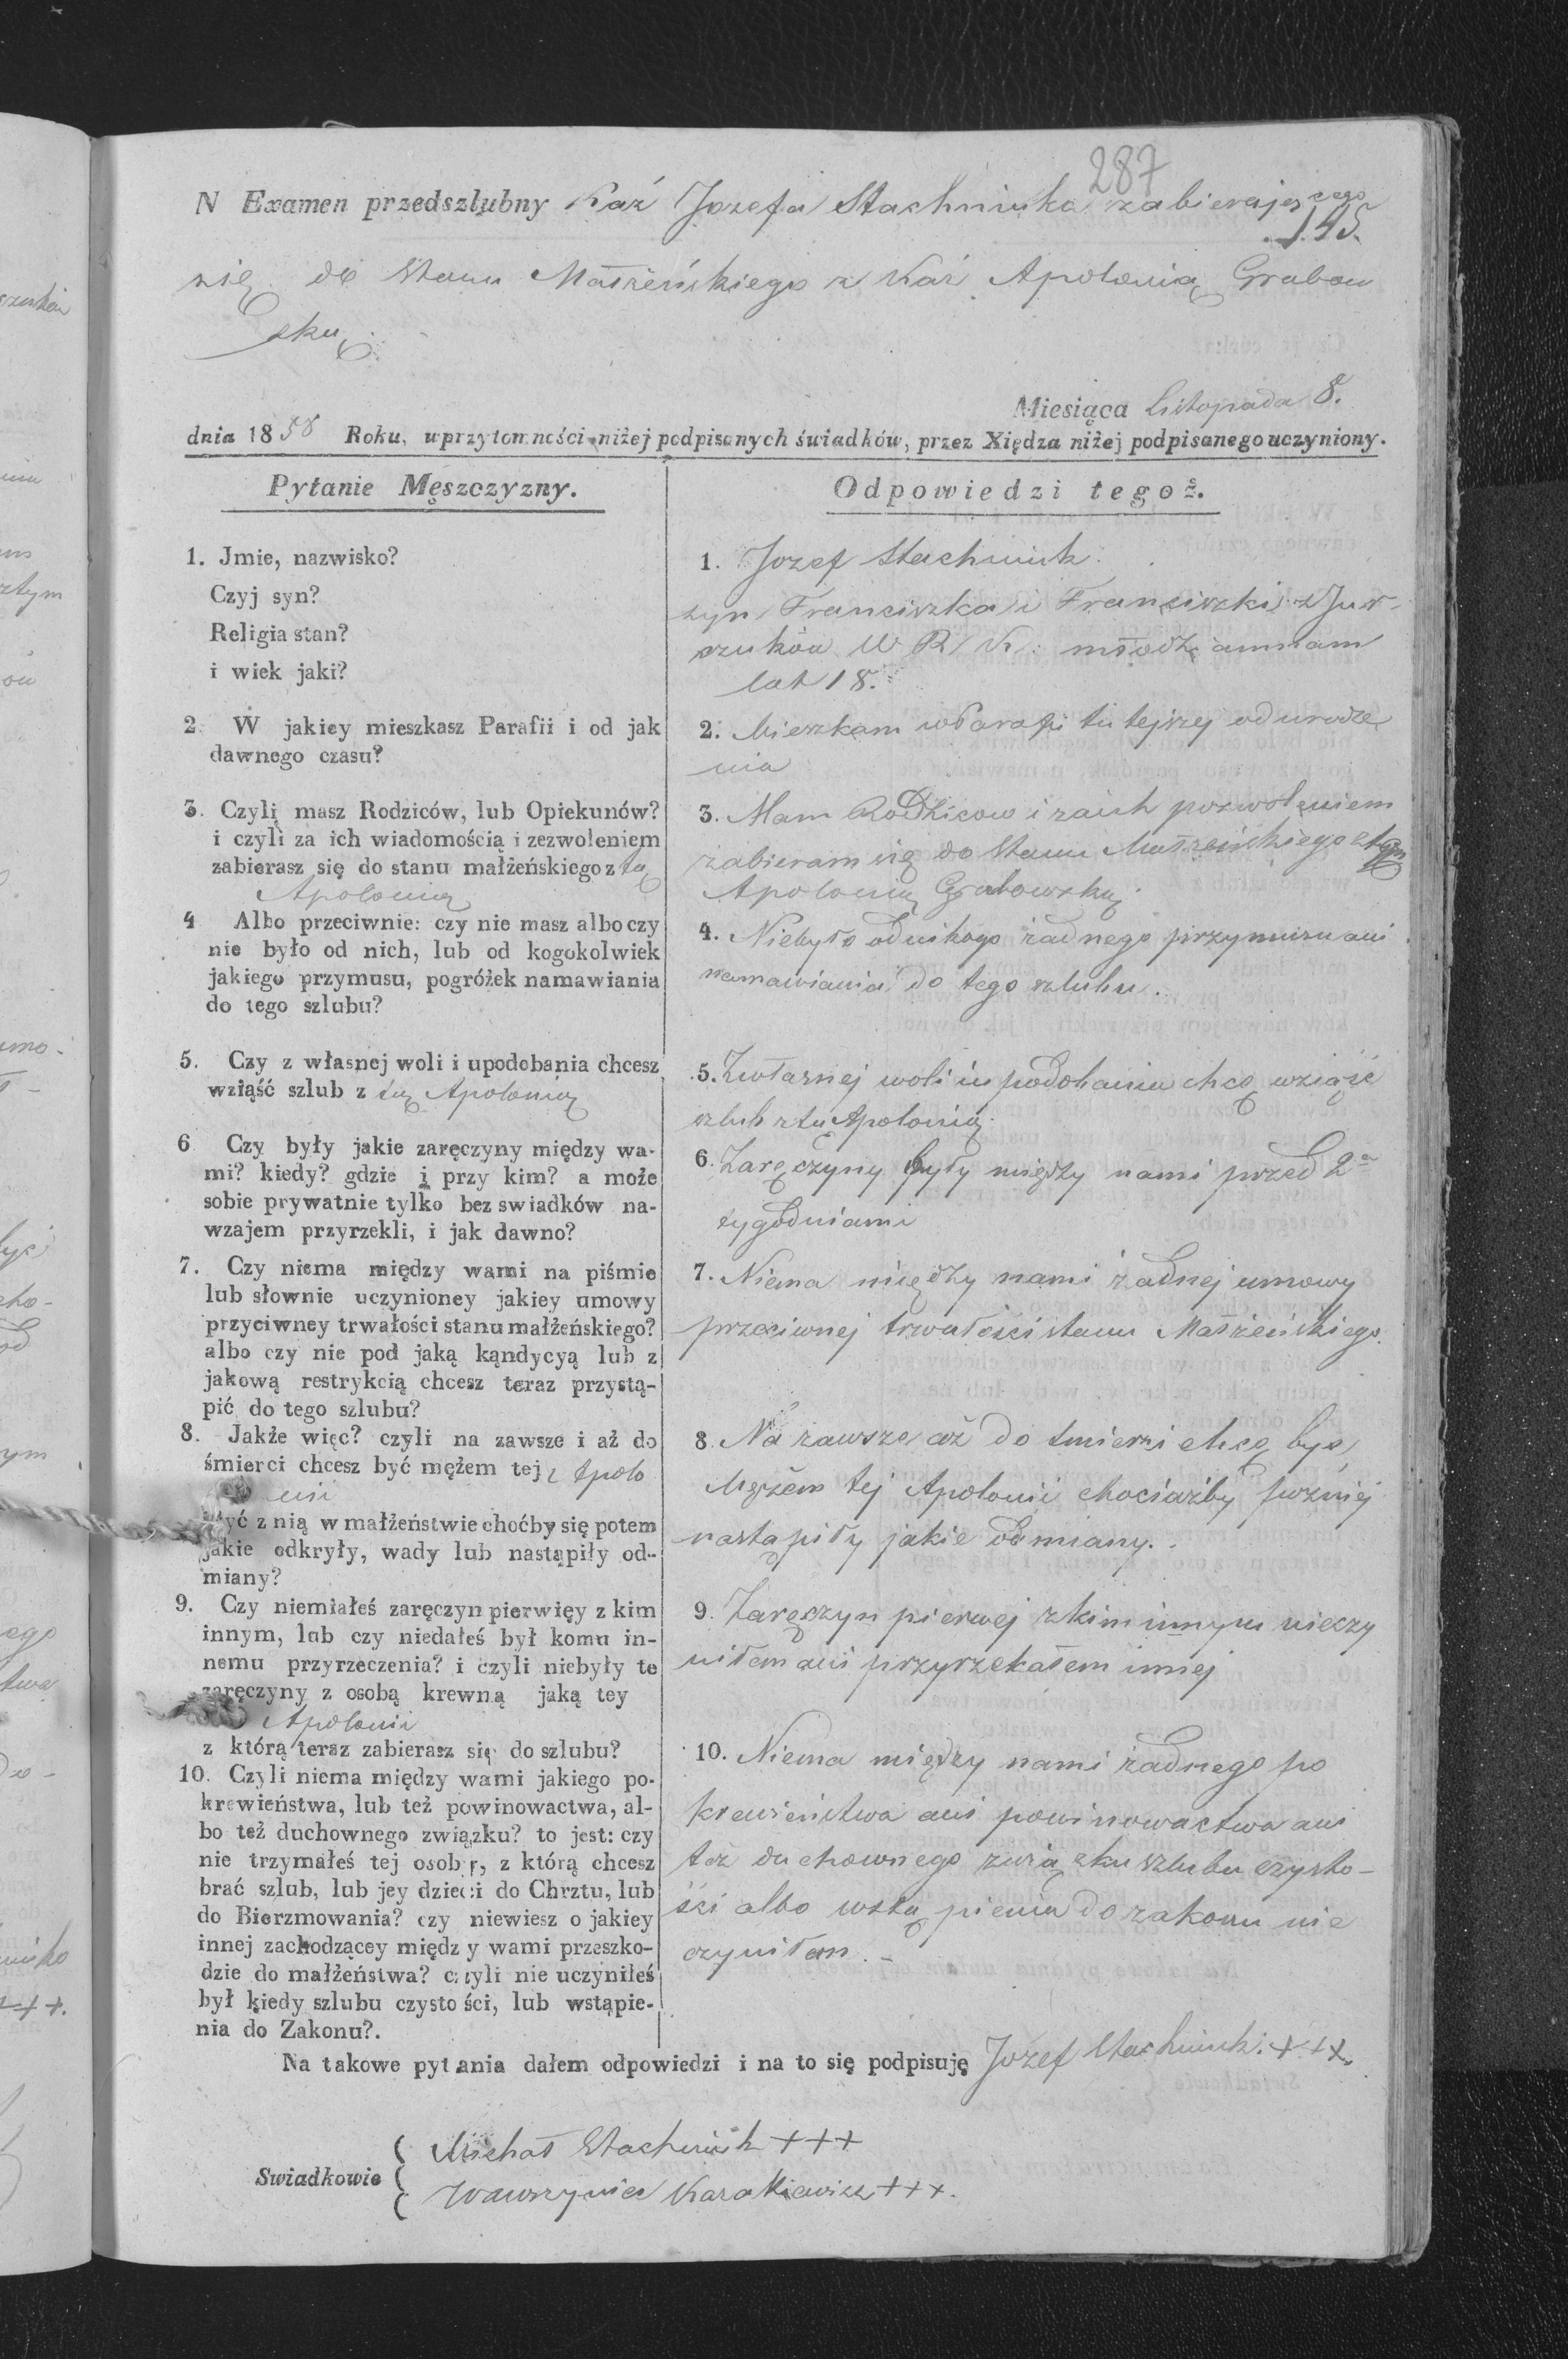 287
N Examen przedszlubny Kaź Jozefa Stachniuka zabierającego
145.
się do Stanu Małżeńskiego z Kaź Apolonią Grabow
ską
Miesiąca Listopada 8.
dnia 1858 Roku, w przytomności niżej podpisanych świadków, przez Xiędza niżej podpisanego uczyniony.
Pytanie Męszczyzny.
1. Jmie, nazwisko?
Czyj syn?
Religia stan?
i wiek jaki?
2. W jakiey mieszkasz Parafii i od jak
dawnego czasu?
3. Czyli masz Rodziców, lub Opiekunów?
i czyli za ich wiadomością i zezwoleniem
zabierasz się do stanu małżeńskiego z tą
Apolonią
4 Albo przeciwnie: czy nie masz albo czy
nie było od nich, lub od kogokolwiek
jakiego przymusu, pogróżek namawiania
do tego szlubu?
5. Czy z własnej woli i upodobania chcesz
wziąść szlub z tą Apolonią
6 Czy były jakie zaręczyny między wa-
mi? kiedy? gdzie i przy kim? a może
sobie prywatnie tylko bez swiadków na-
wzajem przyrzekli, i jak dawno?
7. Czy niema między wami na piśmie
lub słownie uczynioney jakiey umowy
przyciwney trwałości stanu małżeńskiego?
albo czy nie pod jaką kąndycyą lub z
jakową restrykcią chcesz teraz przystą-
pić do tego szlubu?
8. Jakże więc? czyli na zawsze i aż do
śmierci chcesz być mężem tej Apolo
nii
żyć z nią w małżeństwie choćby się potem
jakie odkryły, wady lub nastąpiły od-
miany?
9. Czy niemiałeś zaręczyn pierwięy z kim
innym, lub czy niedałeś był komu in-
nemu przyrzeczenia? i czyli niebyły te
zaręczyny z osobą krewną jaką tey
Apolonii
z którą teraz zabierasz się do szlubu?
10. Czyli niema między wami jakiego po-
krewieństwa, lub też powinowactwa, al-
bo też duchownego związku? to jest: czy
nie trzymałeś tej osoby, z którą chcesz
brać szlub, lub jey dzieci do Chrztu, lub
do Bierzmowania? czy niewiesz o jakiey
innej zachodzącey między wami przeszko-
dzie do małżeństwa? czyli nie uczyniłeś
był kiedy szlubu czystości, lub wstąpie-
nia do Zakonu?.
Odpowiedzi tegoż.
1. Jozef Stachniuk
syn Franciszka i Franciszki z Jur-
czuków W R K. młodzian mam
lat 18.
2. Mieszkam w Parafii tutejszej od urodze
nia
3. Mam Rodzicow i za ich pozwoleniem
zabieram się do Stanu Małżeńskiego z tą
Apolonią Grabowską.
4. Niebyło od nikogo żadnego przymusu ani
namawiania do tego szlubu.
5. Z własnej woli i upodobania chcę wziąść
szlub z tą Apolonią.
6. Zaręczyny były między nami przed 2a
tygodniami
7. Niema między nami żadnej umowy
przeciwnej trwałości stanu Małżeńskiego.
8. Na zawsze aż do śmierzi chcę być
Mężem tej Apolonii chociażby poźniej
nastąpiły jakie odmiany.
9. Zaręczyn pierwej z kim innym nieczy
niłem ani przyrzekałem innej
10. Niema między nami żadnego po
krewieństwa ani powinowactwa ani
też duchownego związku szlubu czysto-
ści albo wstąpienia do zakonu nie
czyniłem. -
Na takowe pytania dałem odpowiedzi i na to się podpisuję Jozef Stachniuk. +++.
Swiadkowie
Michał Stachniuk +++
Wawrzyniec +++.